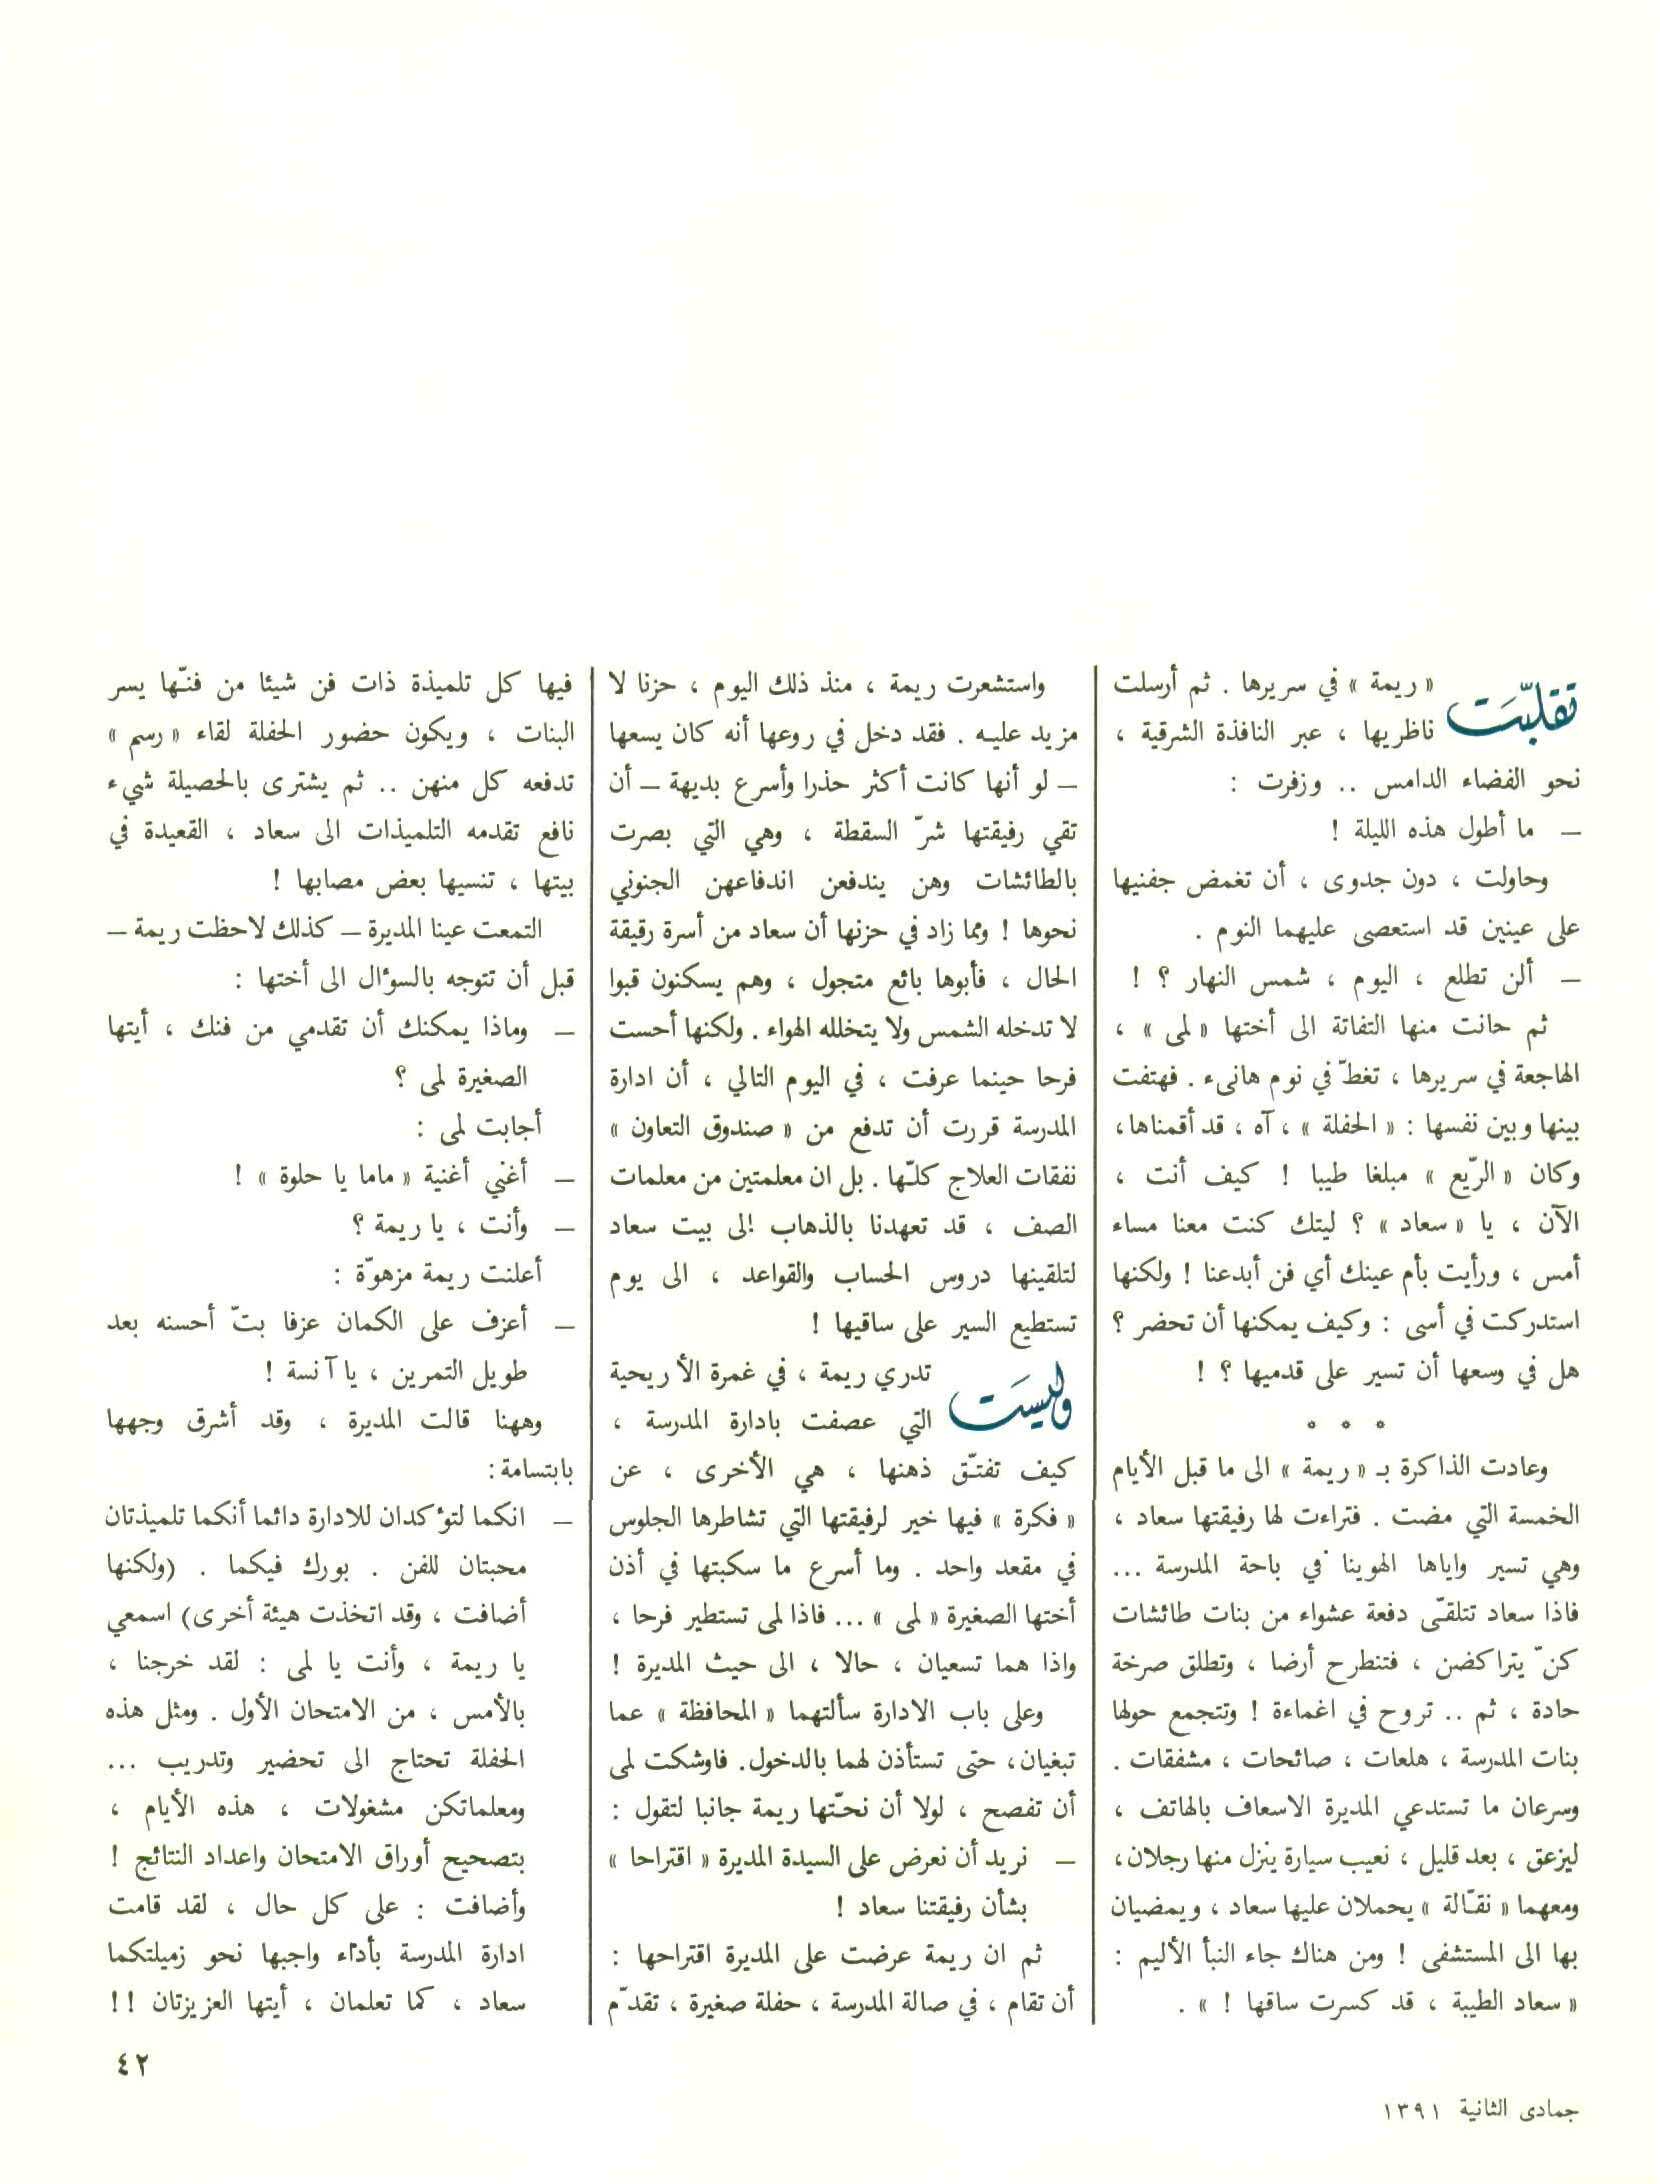 تقلبّت « ريمة » في سريرها . ثم أرسلت
ناظريها ، عبر النافذة الشرقية ،
نحو الفضاء الدامس .. وزفرت :
— ما أطول هذه الليلة !
وحاولت ، دون جدوى ، أن تغمض جفنيها
على عينين قد استعصى عليهما النوم .
— ألن تطلع ، اليوم ، شمس النهار ؟ !
ثم حانت منها التفاتة الى أختها « لمى » ،
الهاجعة في سريرها ، تغطّ في نوم هانىء . فهتفت
بينها وبين نفسها : « الحفلة » ، آه ، قد أقمناها ،
وكان « الرّيع » مبلغا طيبا ! كيف أنت ،
الآن ، يا « سعاد » ؟ ليتك كنت معنا مساء
أمس ، ورأيت بأم عينك أي فن أبدعنا ! ولكنها
استدركت في أسى : وكيف يمكنها أن تحضر ؟
هل في وسعها أن تسير على قدميها ؟ !
° ° °
وعادت الذاكرة بـ « ريمة » الى ما قبل الأيام
الخمسة التي مضت . فتراءت لها رفيقتها سعاد ،
وهي تسير واياها الهوينا في باحة المدرسة ...
فاذا سعاد تتلقّى دفعة عشواء من بنات طائشات
كنّ يتراكضن ، فتنطرح أرضا ، وتطلق صرخة
حادة ، ثم .. تروح في اغماءة ! وتتجمع حولها
بنات المدرسة ، هلعات ، صائحات ، مشفقات .
وسرعان ما تستدعي المديرة الاسعاف بالهاتف ،
ليزعق ، بعد قليل ، نعيب سيارة ينزل منها رجلان ،
ومعهما « نقّالة » يحملان عليها سعاد ، ويمضيان
بها الى المستشفى ! ومن هناك جاء النبأ الأليم :
« سعاد الطيبة ، قد كسرت ساقها ! » .
واستشعرت ريمة ، منذ ذلك اليوم ، حزنا لا
مزيد عليه . فقد دخل في روعها أنه كان يسعها
— لو أنها كانت أكثر حذرا وأسرع بديهة — أن
تقي رفيقتها شرّ السقطة ، وهي التي بصرت
بالطائشات وهن يندفعن اندفاعهن الجنوني
نحوها ! ومما زاد في حزنها أن سعاد من أسرة رقيقة
الحال ، فأبوها بائع متجول ، وهم يسكنون قبوا
لا تدخله الشمس ولا يتخلله الهواء . ولكنها أحست
فرحا حينما عرفت ، في اليوم التالي ، أن ادارة
المدرسة قررت أن تدفع من « صندوق التعاون »
نفقات العلاج كلّها . بل ان معلمتين من معلمات
الصف ، قد تعهدنا بالذهاب الى بيت سعاد
لتلقينها دروس الحساب والقواعد ، الى يوم
تستطيع السير على ساقيها !
وليسَت تدري ريمة ، في غمرة الأريحية
التي عصفت بادارة المدرسة ،
كيف تفتّق ذهنها ، هي الأخرى ، عن
« فكرة » فيها خير لرفيقتها التي تشاطرها الجلوس
في مقعد واحد . وما أسرع ما سكبتها في أذن
أختها الصغيرة « لمى » ... فاذا لمى تستطير فرحا ،
واذا هما تسعيان ، حالا ، الى حيث المديرة !
وعلى باب الادارة سألتهما « المحافظة » عما
تبغيان ، حتى تستأذن لهما بالدخول . فاوشكت لمى
أن تفصح ، لولا أن نحّتها ريمة جانبا لتقول :
— نريد أن نعرض على السيدة المديرة « اقتراحا »
بشأن رفيقتنا سعاد !
ثم ان ريمة عرضت على المديرة اقتراحها :
أن تقام ، في صالة المدرسة ، حفلة صغيرة ، تقدّم
فيها كل تلميذة ذات فن شيئا من فنّها يسر
البنات ، ويكون حضور الحفلة لقاء « رسم »
تدفعه كل منهن .. ثم يشترى بالحصيلة شيء
نافع تقدمه التلميذات الى سعاد ، القعيدة في
بيتها ، تنسيها بعض مصابها !
التمعت عينا المديرة — كذلك لاحظت ريمة —
قبل أن تتوجه بالسؤال الى أختها :
— وماذا يمكنك أن تقدمي من فنك ، أيتها
الصغيرة لمى ؟
أجابت لمى :
— أغني أغنية « ماما يا حلوة » !
— وأنت ، يا ريمة ؟
أعلنت ريمة مزهوّة :
— أعزف على الكمان عزفا بتّ أحسنه بعد
طويل التمرين ، يا آنسة !
وههنا قالت المديرة ، وقد أشرق وجهها
بابتسامة :
— انكما لتؤكدان للادارة دائما أنكما تلميذتان
محبتان للفن . بورك فيكما . (ولكنها
أضافت ، وقد اتخذت هيئة أخرى) اسمعي
يا ريمة ، وأنت يا لمى : لقد خرجنا ،
بالأمس ، من الامتحان الأول . ومثل هذه
الحفلة تحتاج الى تحضير وتدريب ...
ومعلماتكن مشغولات ، هذه الأيام ،
بتصحيح أوراق الامتحان واعداد النتائج !
وأضافت : على كل حال ، لقد قامت
ادارة المدرسة بأداء واجبها نحو زميلتكما
سعاد ، كما تعلمان ، أيتها العزيزتان !!
٤٢
جمادى الثانية ١٣٩١